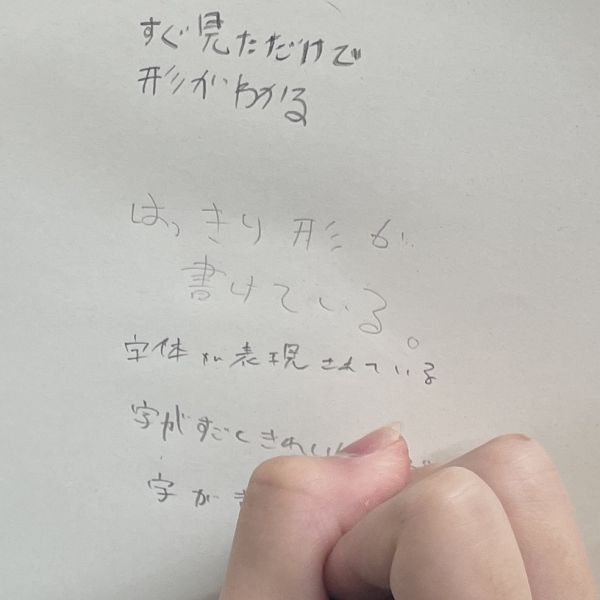 すぐ見ただけで
形がわかる
はっきり形が
書けている。
字体が表現されている
字がすごくきれい
字が